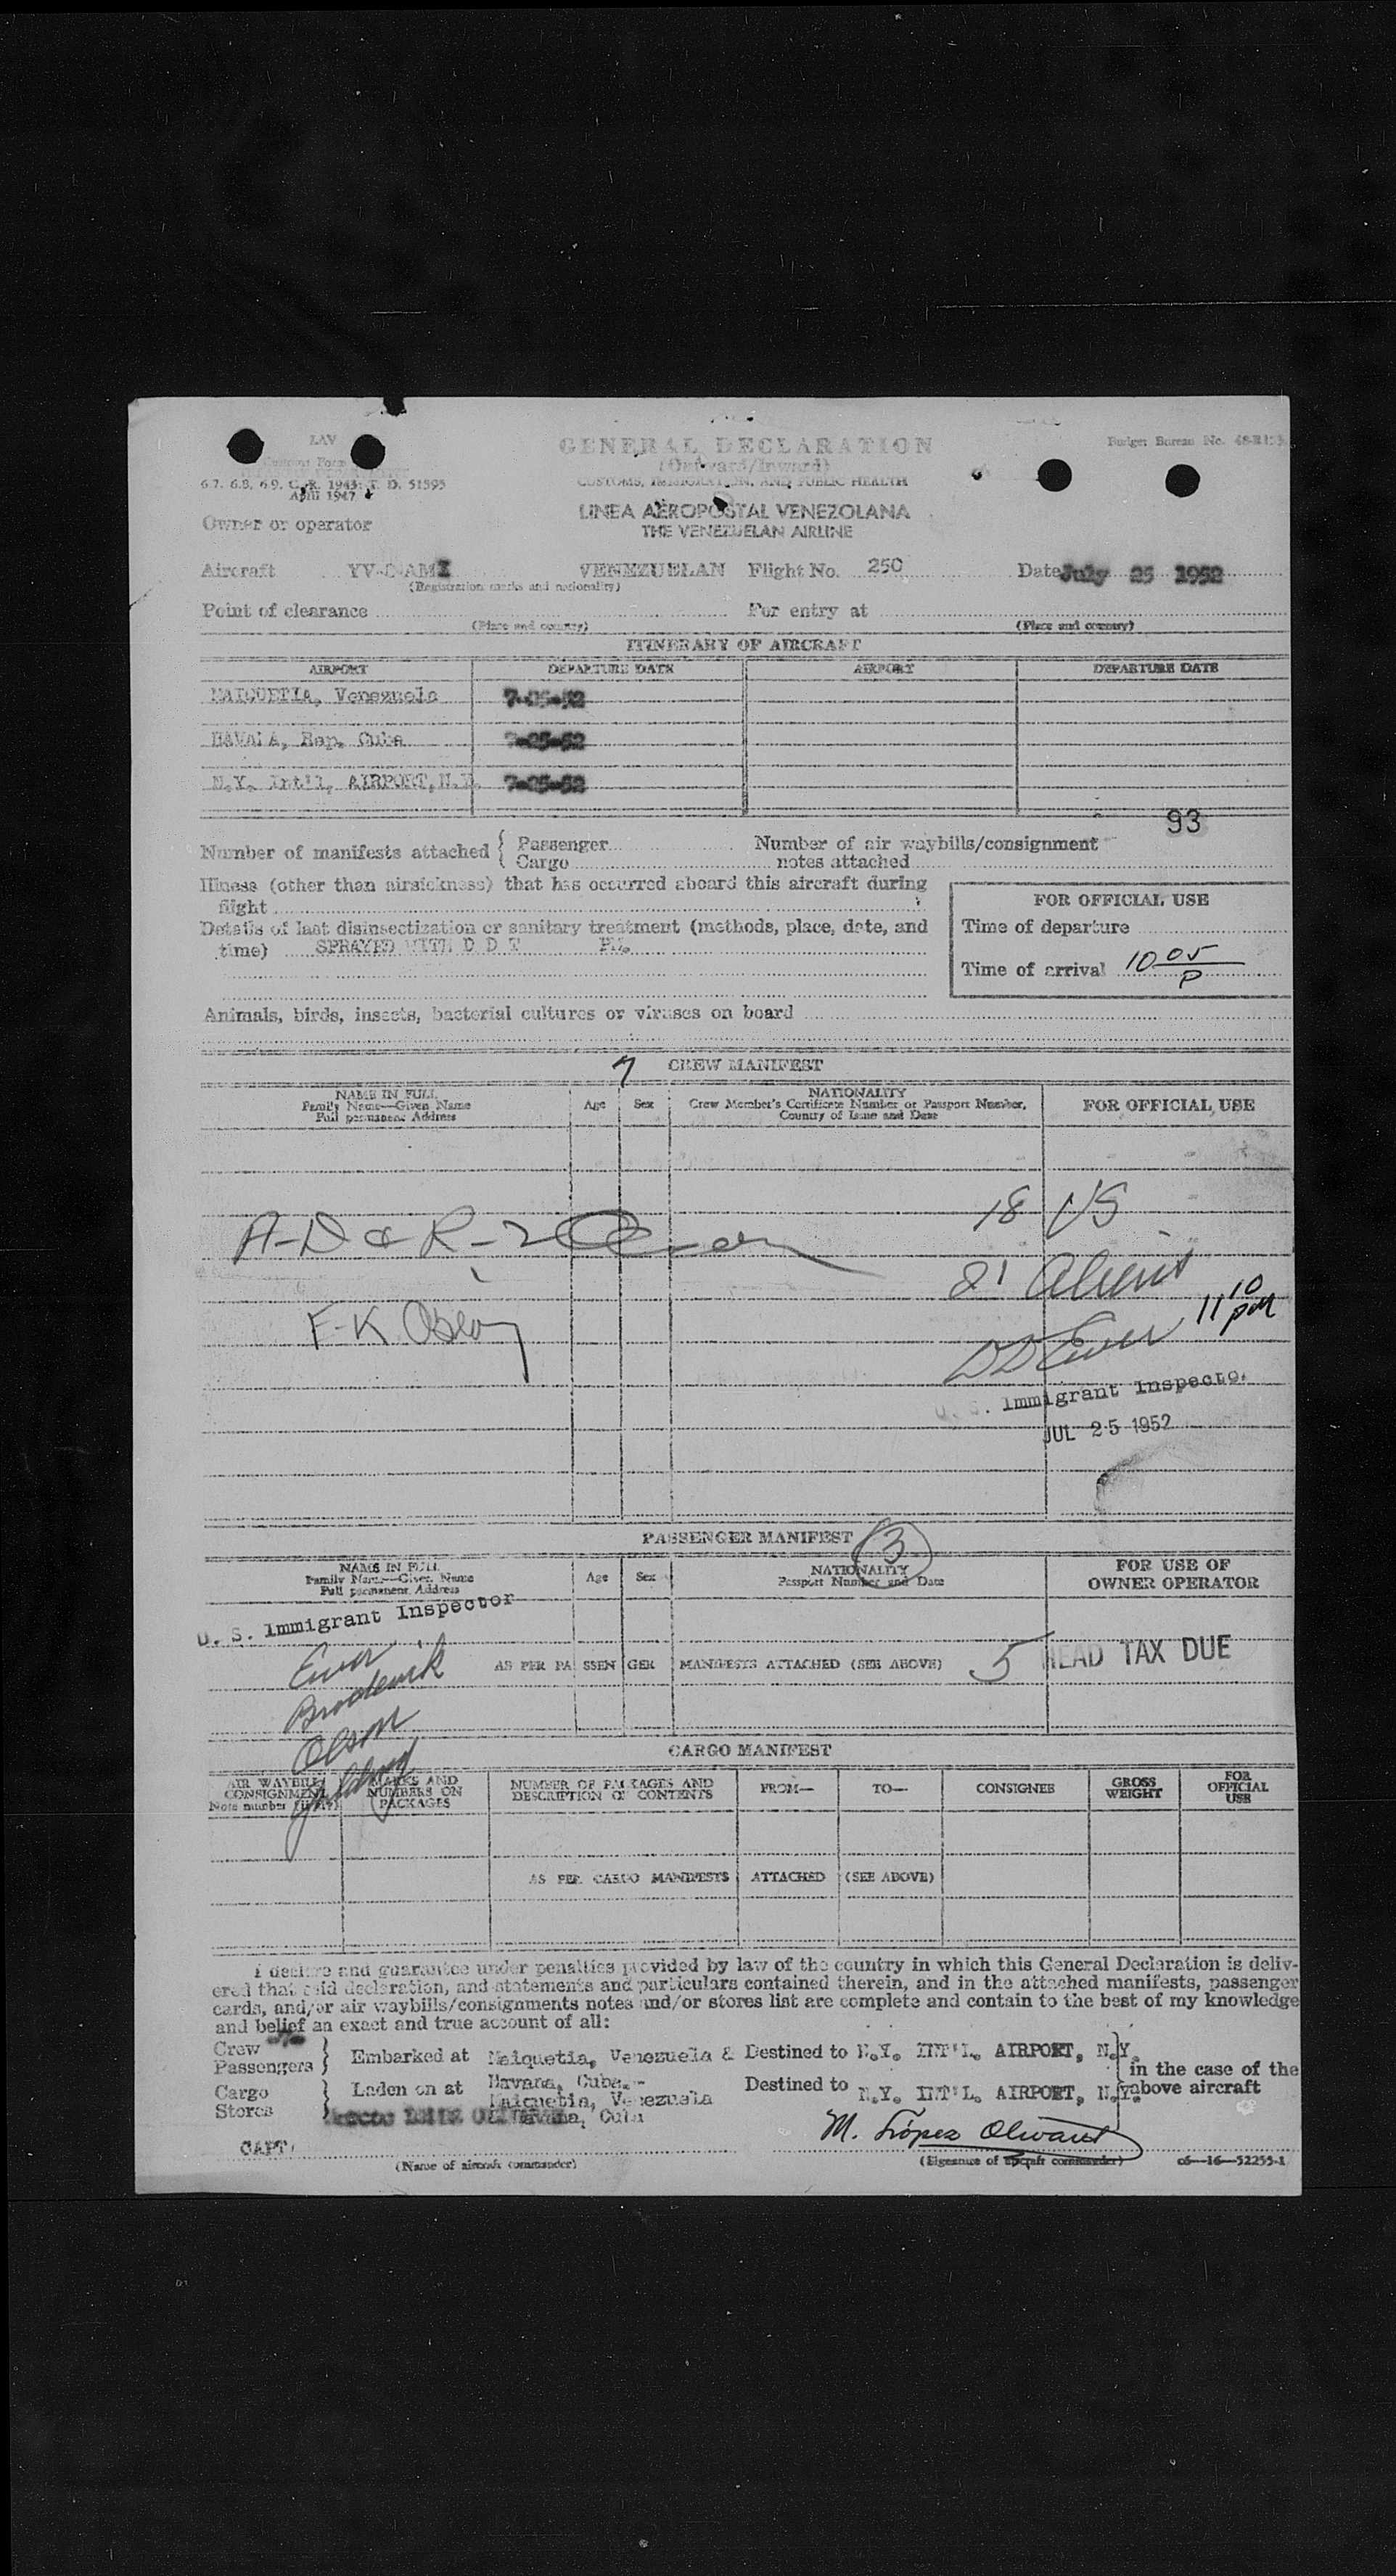 LAV
GENERAL DECLARATION
(Outward/Inward)
Budget Bureau No.
CUSTOMS, IMMIGRATION, AND PUBLIC HEALTH
6.7, 6.8, 6.9, C. R. 1943: T. D. 51595
April 1947
LINEA AEROPOSTAL VENEZOLANA
THE VENEZUELAN AIRLINE
Owner or operator
Aircraft YV-C-AMI VENEZUELAN Flight No. 250 Date July 25 1952
(Registration marks and nationality)
Point of clearance For entry at
(Place and country) (Place and country)
ITINERARY OF AIRCRAFT
AIRPORT DEPARTURE DATE AIRPORT DEPARTURE DATE
MAIQUETIA, Venezuela 7-25-52
HAVANA, Rep. Cuba 7-25-52
N.Y. Int'l, AIRPORT, N.Y. 7-25-52
93
Number of manifests attached { Passenger Number of air waybills/consignment
Cargo notes attached
Illness (other than airsickness) that has occurred aboard this aircraft during
flight
FOR OFFICIAL USE
Details of last disinsectization or sanitary treatment (methods, place, date, and
time) SPRAYED WITH D D T PM.
Time of departure
Time of arrival 10 05 P
Animals, birds, insects, bacterial cultures or viruses on board
7 CREW MANIFEST
NAME IN FULL
Family Name—Given Name
Full permanent Address
Age Sex
NATIONALITY
Crew Member's Certificate Number or Passport Number,
Country of Issue and Date
FOR OFFICIAL USE
18 US
21 Aliens
11 10 pm
U. S. Immigrant Inspector
JUL 25 1952
PASSENGER MANIFEST (3)
NAME IN FULL
Family Name—Given Name
Full permanent Address
Age Sex
NATIONALITY
Passport Number and Date
FOR USE OF
OWNER OPERATOR
U. S. Immigrant Inspector
Ewer
Broderick
Olson
AS PER PASSENGER MANIFESTS ATTACHED (SEE ABOVE) 5 HEAD TAX DUE
CARGO MANIFEST
AIR WAYBILL/
CONSIGNMENT
Note number
MARKS AND
NUMBERS ON
PACKAGES
NUMBER OF PACKAGES AND
DESCRIPTION OF CONTENTS
FROM— TO— CONSIGNEE
GROSS
WEIGHT
FOR
OFFICIAL
USE
AS PER CARGO MANIFESTS ATTACHED (SEE ABOVE)
I declare and guarantee under penalties provided by law of the country in which this General Declaration is deliv-
ered that said declaration, and statements and particulars contained therein, and in the attached manifests, passenger
cards, and/or air waybills/consignments notes and/or stores list are complete and contain to the best of my knowledge
and belief an exact and true account of all:
Crew
Passengers } Embarked at Maiquetia, Venezuela & Destined to N.Y. INT'L. AIRPORT, N.Y.
Havana, Cuba.-
in the case of the
above aircraft
Cargo
Stores } Laden on at Maiquetia, Venezuela Destined to N.Y. INT'L. AIRPORT, N.Y.
Havana, Cuba
CAPT.
M. López Olivares
(Name of aircraft commander) (Signature of aircraft commander) c6—16—52255-1